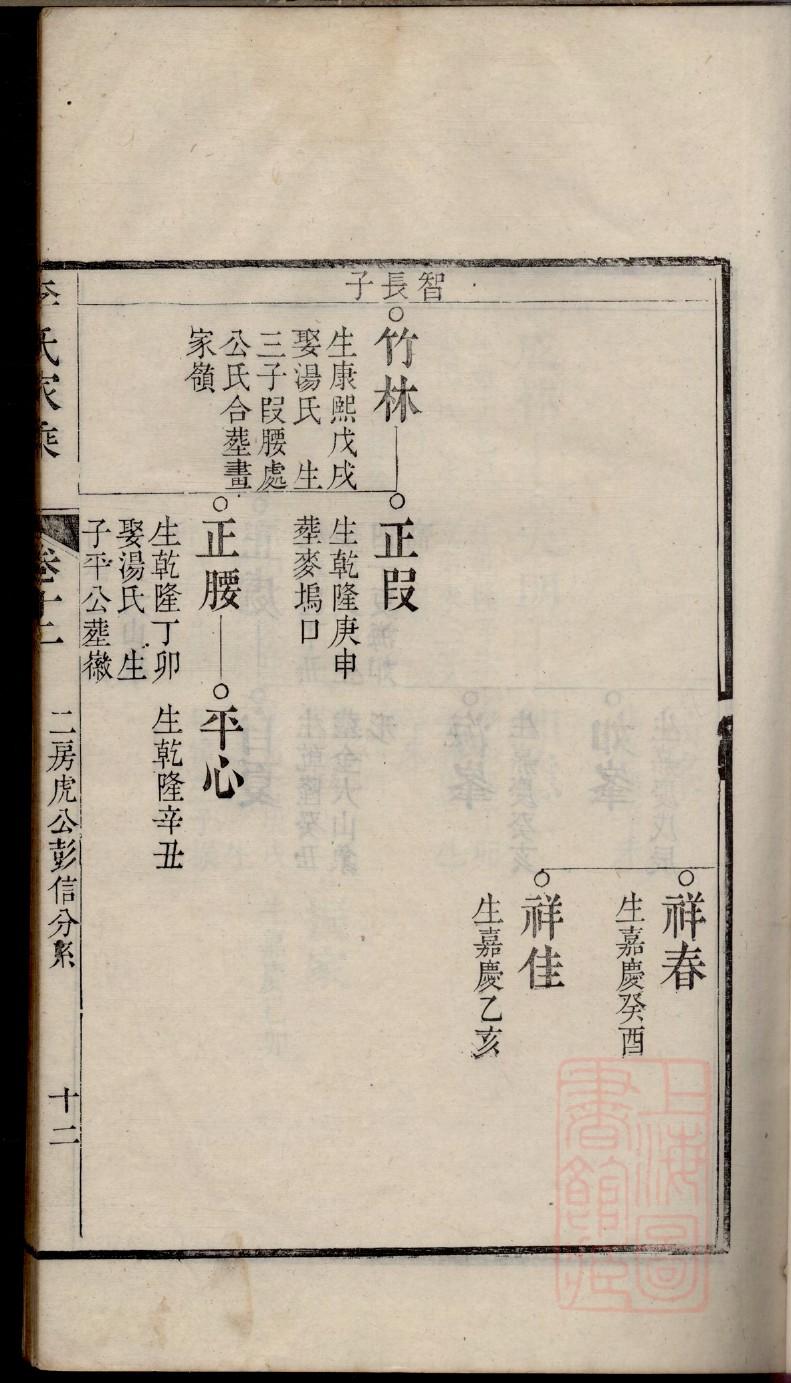 智長子
祥春
生嘉慶癸酉
祥佳
生嘉慶乙亥
竹林
生康熙戊戌
娶湯氏 生
三子叚腰處
公氏合塟畫
家嶺
正叚
生乾隆庚申
塟麥塢口
正腰
生乾隆丁卯
娶湯氏 生
子平公塟㵟
平心
生乾隆辛丑
李氏家乘
卷十二
二房虎公彭信分系
十二
上海圖
書館藏